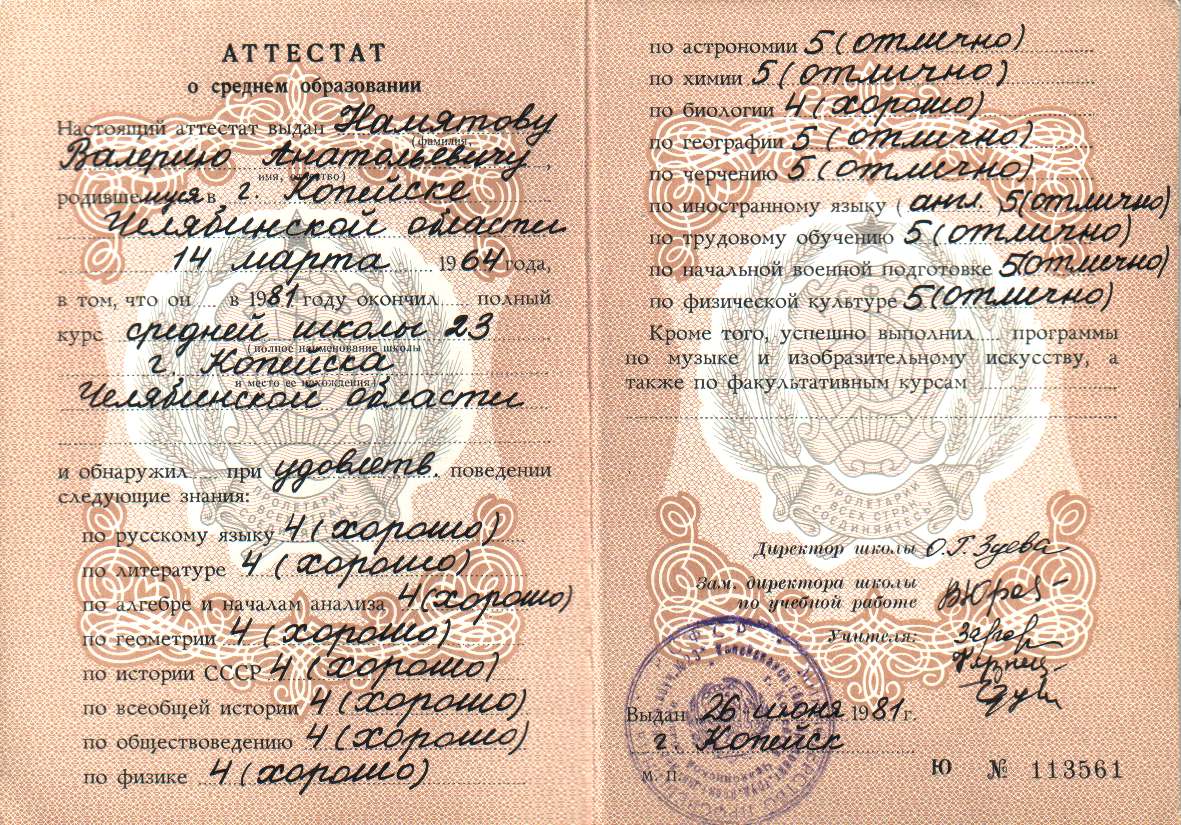 АТТЕСТАТ
о среднем образовании
Настоящий аттестат выдан Намятову
(фамилия,
Валерию Анатольевичу,
имя, отчество)
родившемуся в г. Копейске
Челябинской области
14 марта 1964 года,
в том, что он в 1981 году окончил полный
курс средней школы 23
(полное наименование школы
г. Копейска
и место ее нахождения)
Челябинской области
и обнаружил при удовлетв. поведении
следующие знания:
по русскому языку 4 (хорошо)
по литературе 4 (хорошо)
по алгебре и началам анализа 4 (хорошо)
по геометрии 4 (хорошо)
по истории СССР 4 (хорошо)
по всеобщей истории 4 (хорошо)
по обществоведению 4 (хорошо)
по физике 4 (хорошо)
ПРОЛЕТАРИИ
ВСЕХ СТРАН
СОЕДИНЯЙТЕСЬ
по астрономии 5 (отлично)
по химии 5 (отлично)
по биологии 4 (хорошо)
по географии 5 (отлично)
по черчению 5 (отлично)
по иностранному языку (англ. 5 (отлично)
по трудовому обучению 5 (отлично)
по начальной военной подготовке 5 (отлично)
по физической культуре 5 (отлично)
Кроме того, успешно выполнил программы
по музыке и изобразительному искусству, а
также по факультативным курсам
ПРОЛЕТАРИИ
ВСЕХ СТРАН
СОЕДИНЯЙТЕСЬ
Директор школы О.Г. Зуева
Зам. директора школы
по учебной работе
Учителя:
Выдан 26 июня 1981 г.
г. Копейск
М. П.
Ю № 113561